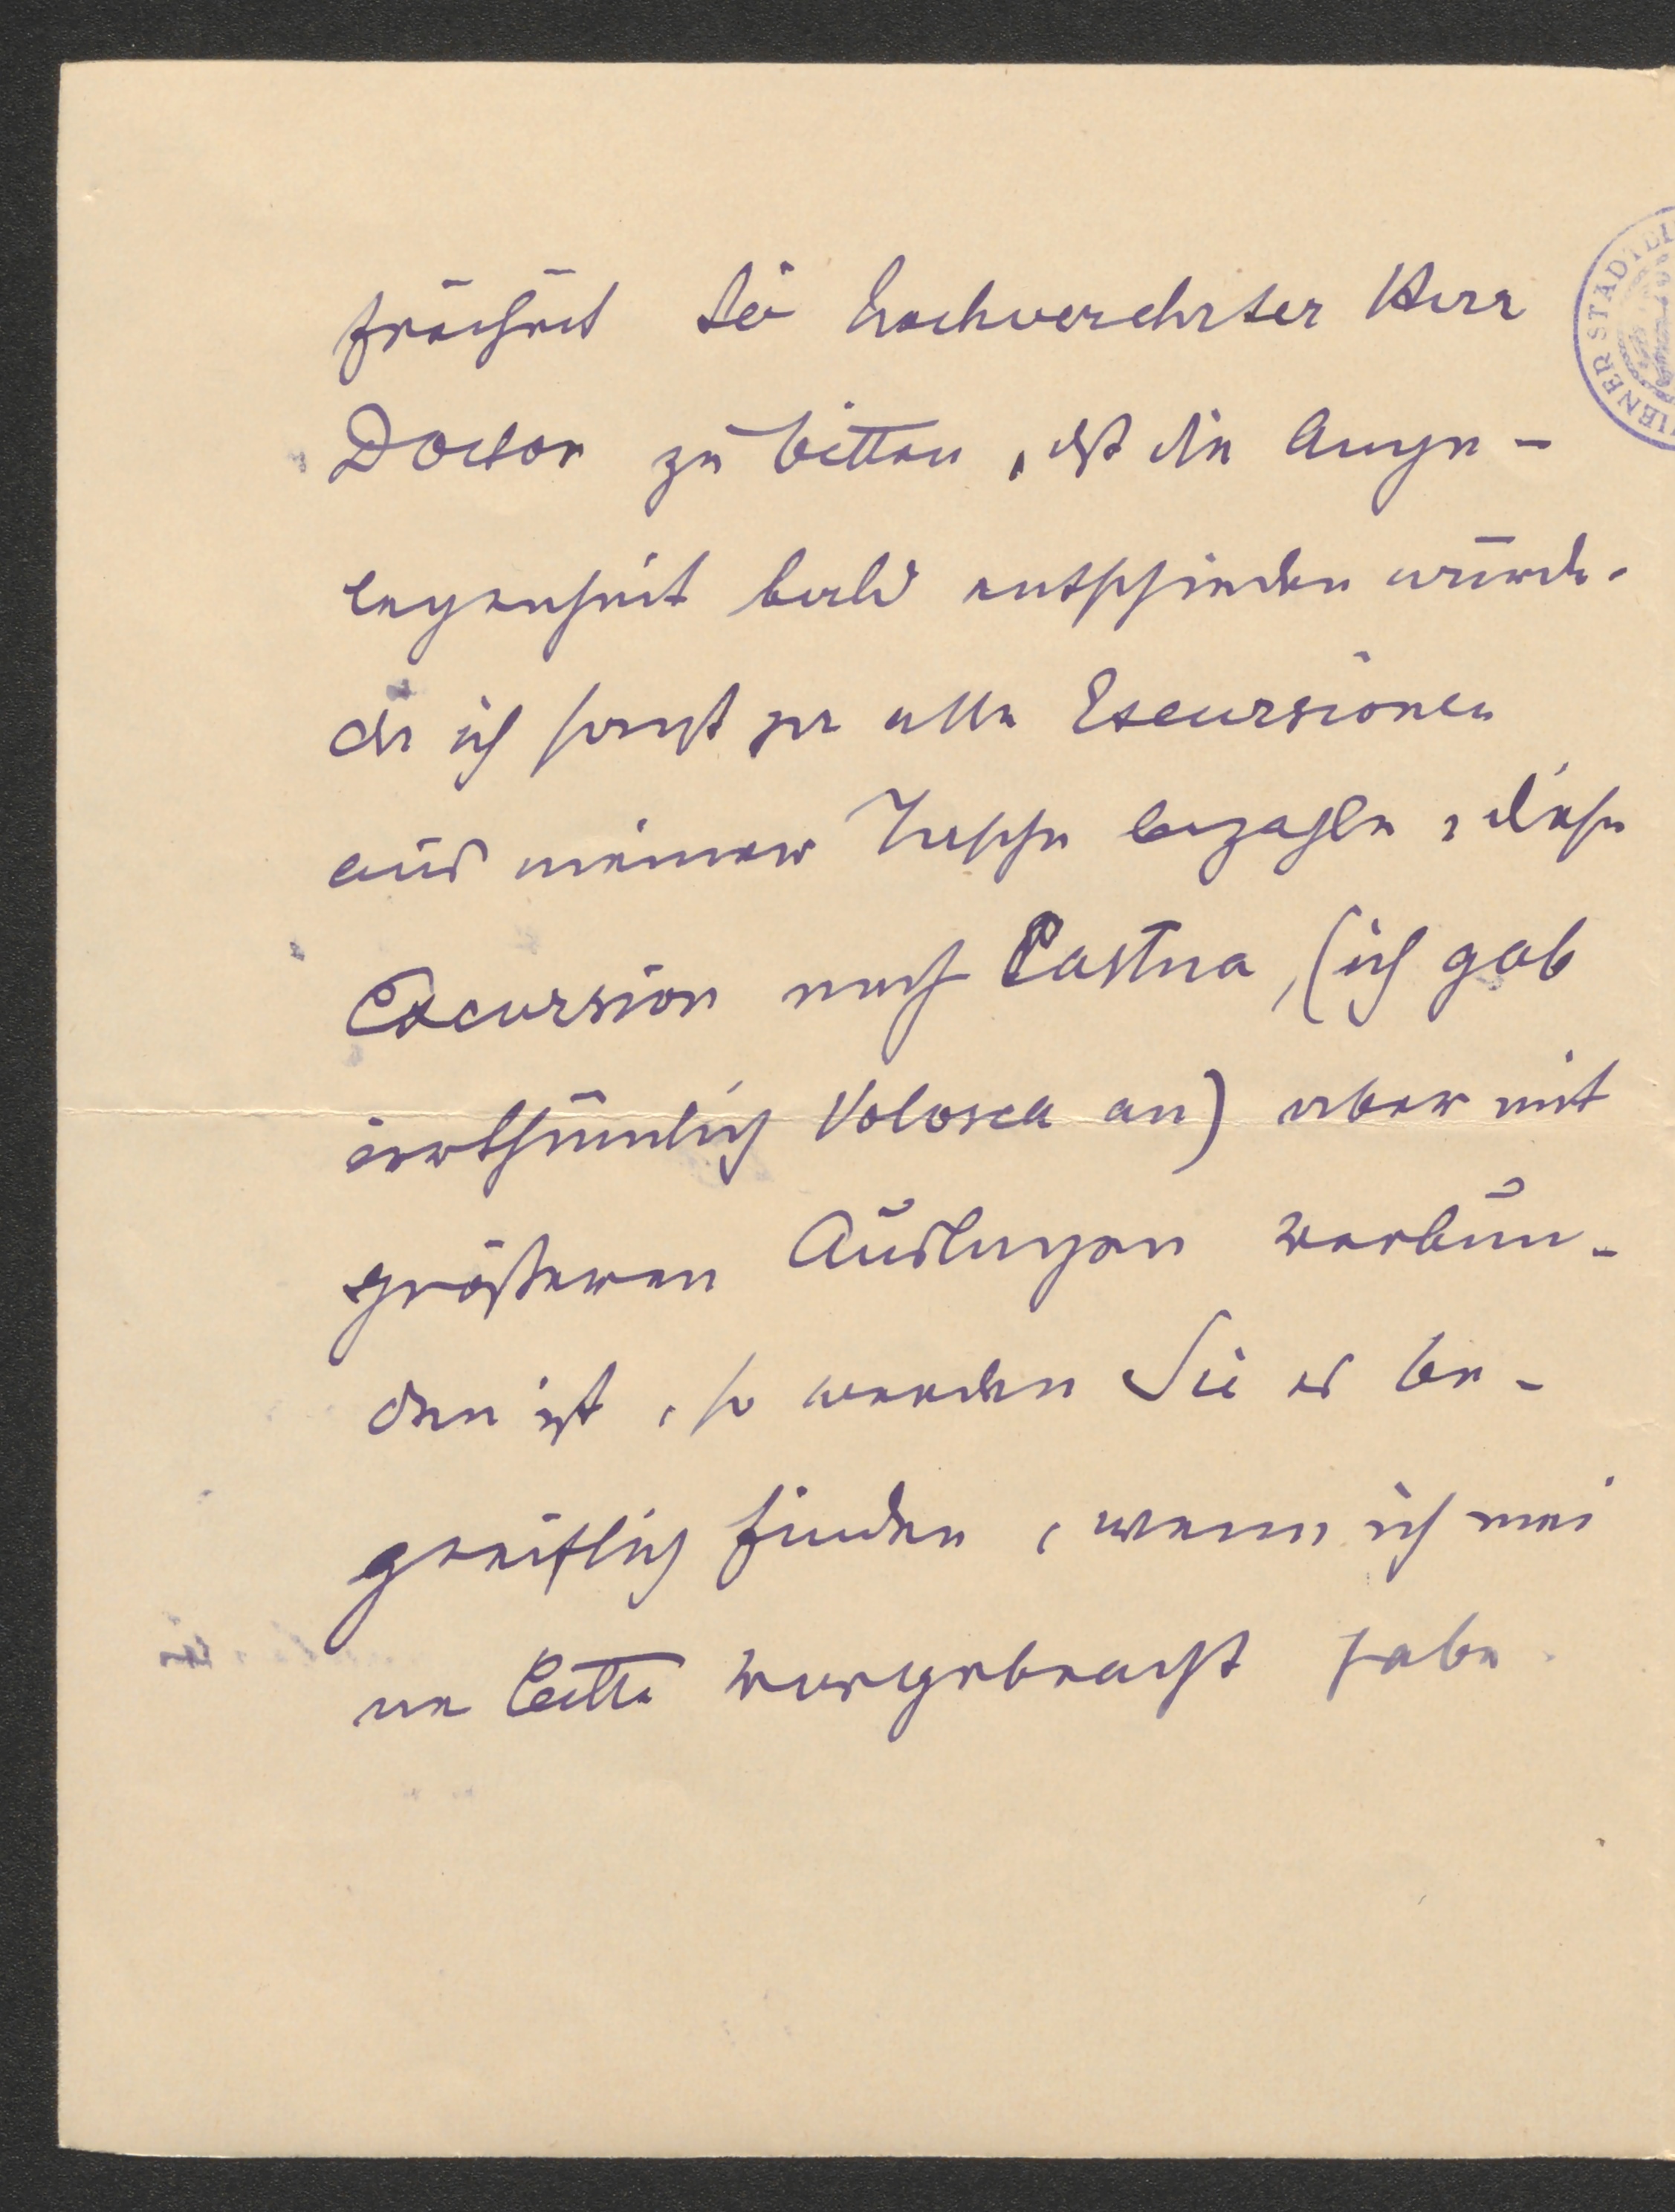 Sie hochverehrter Herr
Doctor zu bitten, daß die Ange-
legenheit bald entschieden würde.
da ich sonst ja alle Excursionen
aus meiner Tasche bezahle, diese
Excursion nach Castua, (ich gab
irrthümlich Volosca an) aber mit
größeren Auslagen verbun-
den ist, so werden Sie es be-
greiflich finden, wenn ich mei
ne Bitte vorgebracht habe.
WIENER STADT